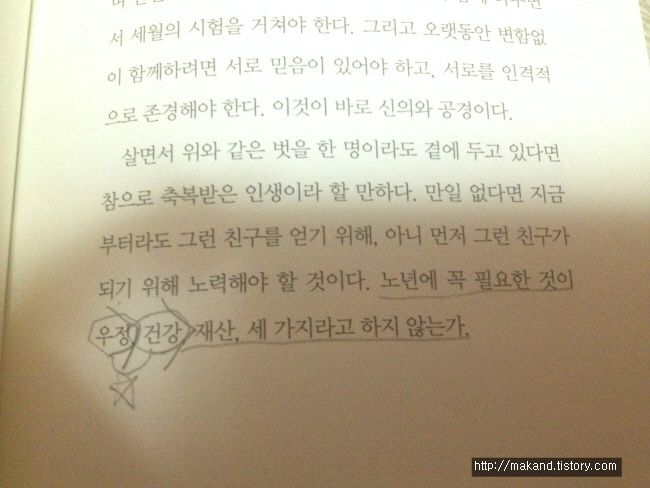 서 세월의 시험을 거쳐야 한다. 그리고 오랫동안 변함없
이 함께하려면 서로 믿음이 있어야 하고, 서로를 인격적
으로 존경해야 한다. 이것이 바로 신의와 공경이다.
살면서 위와 같은 벗을 한 명이라도 곁에 두고 있다면
참으로 축복받은 인생이라 할 만하다. 만일 없다면 지금
부터라도 그런 친구를 얻기 위해, 아니 먼저 그런 친구가
되기 위해 노력해야 할 것이다. 노년에 꼭 필요한 것이
우정, 건강, 재산, 세 가지라고 하지 않는가.
http://makand.tistory.com